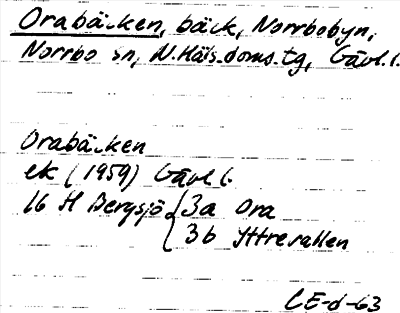 Orabäcken, bäck, Norrbobyn,
Norrbo sn, N.Häls.doms.tg, Gävl.l.
Orabäcken
ek (1959) Gävl l.
16 H Bergsjö { 3a Ora
3b Yttervallen
CE-d-63